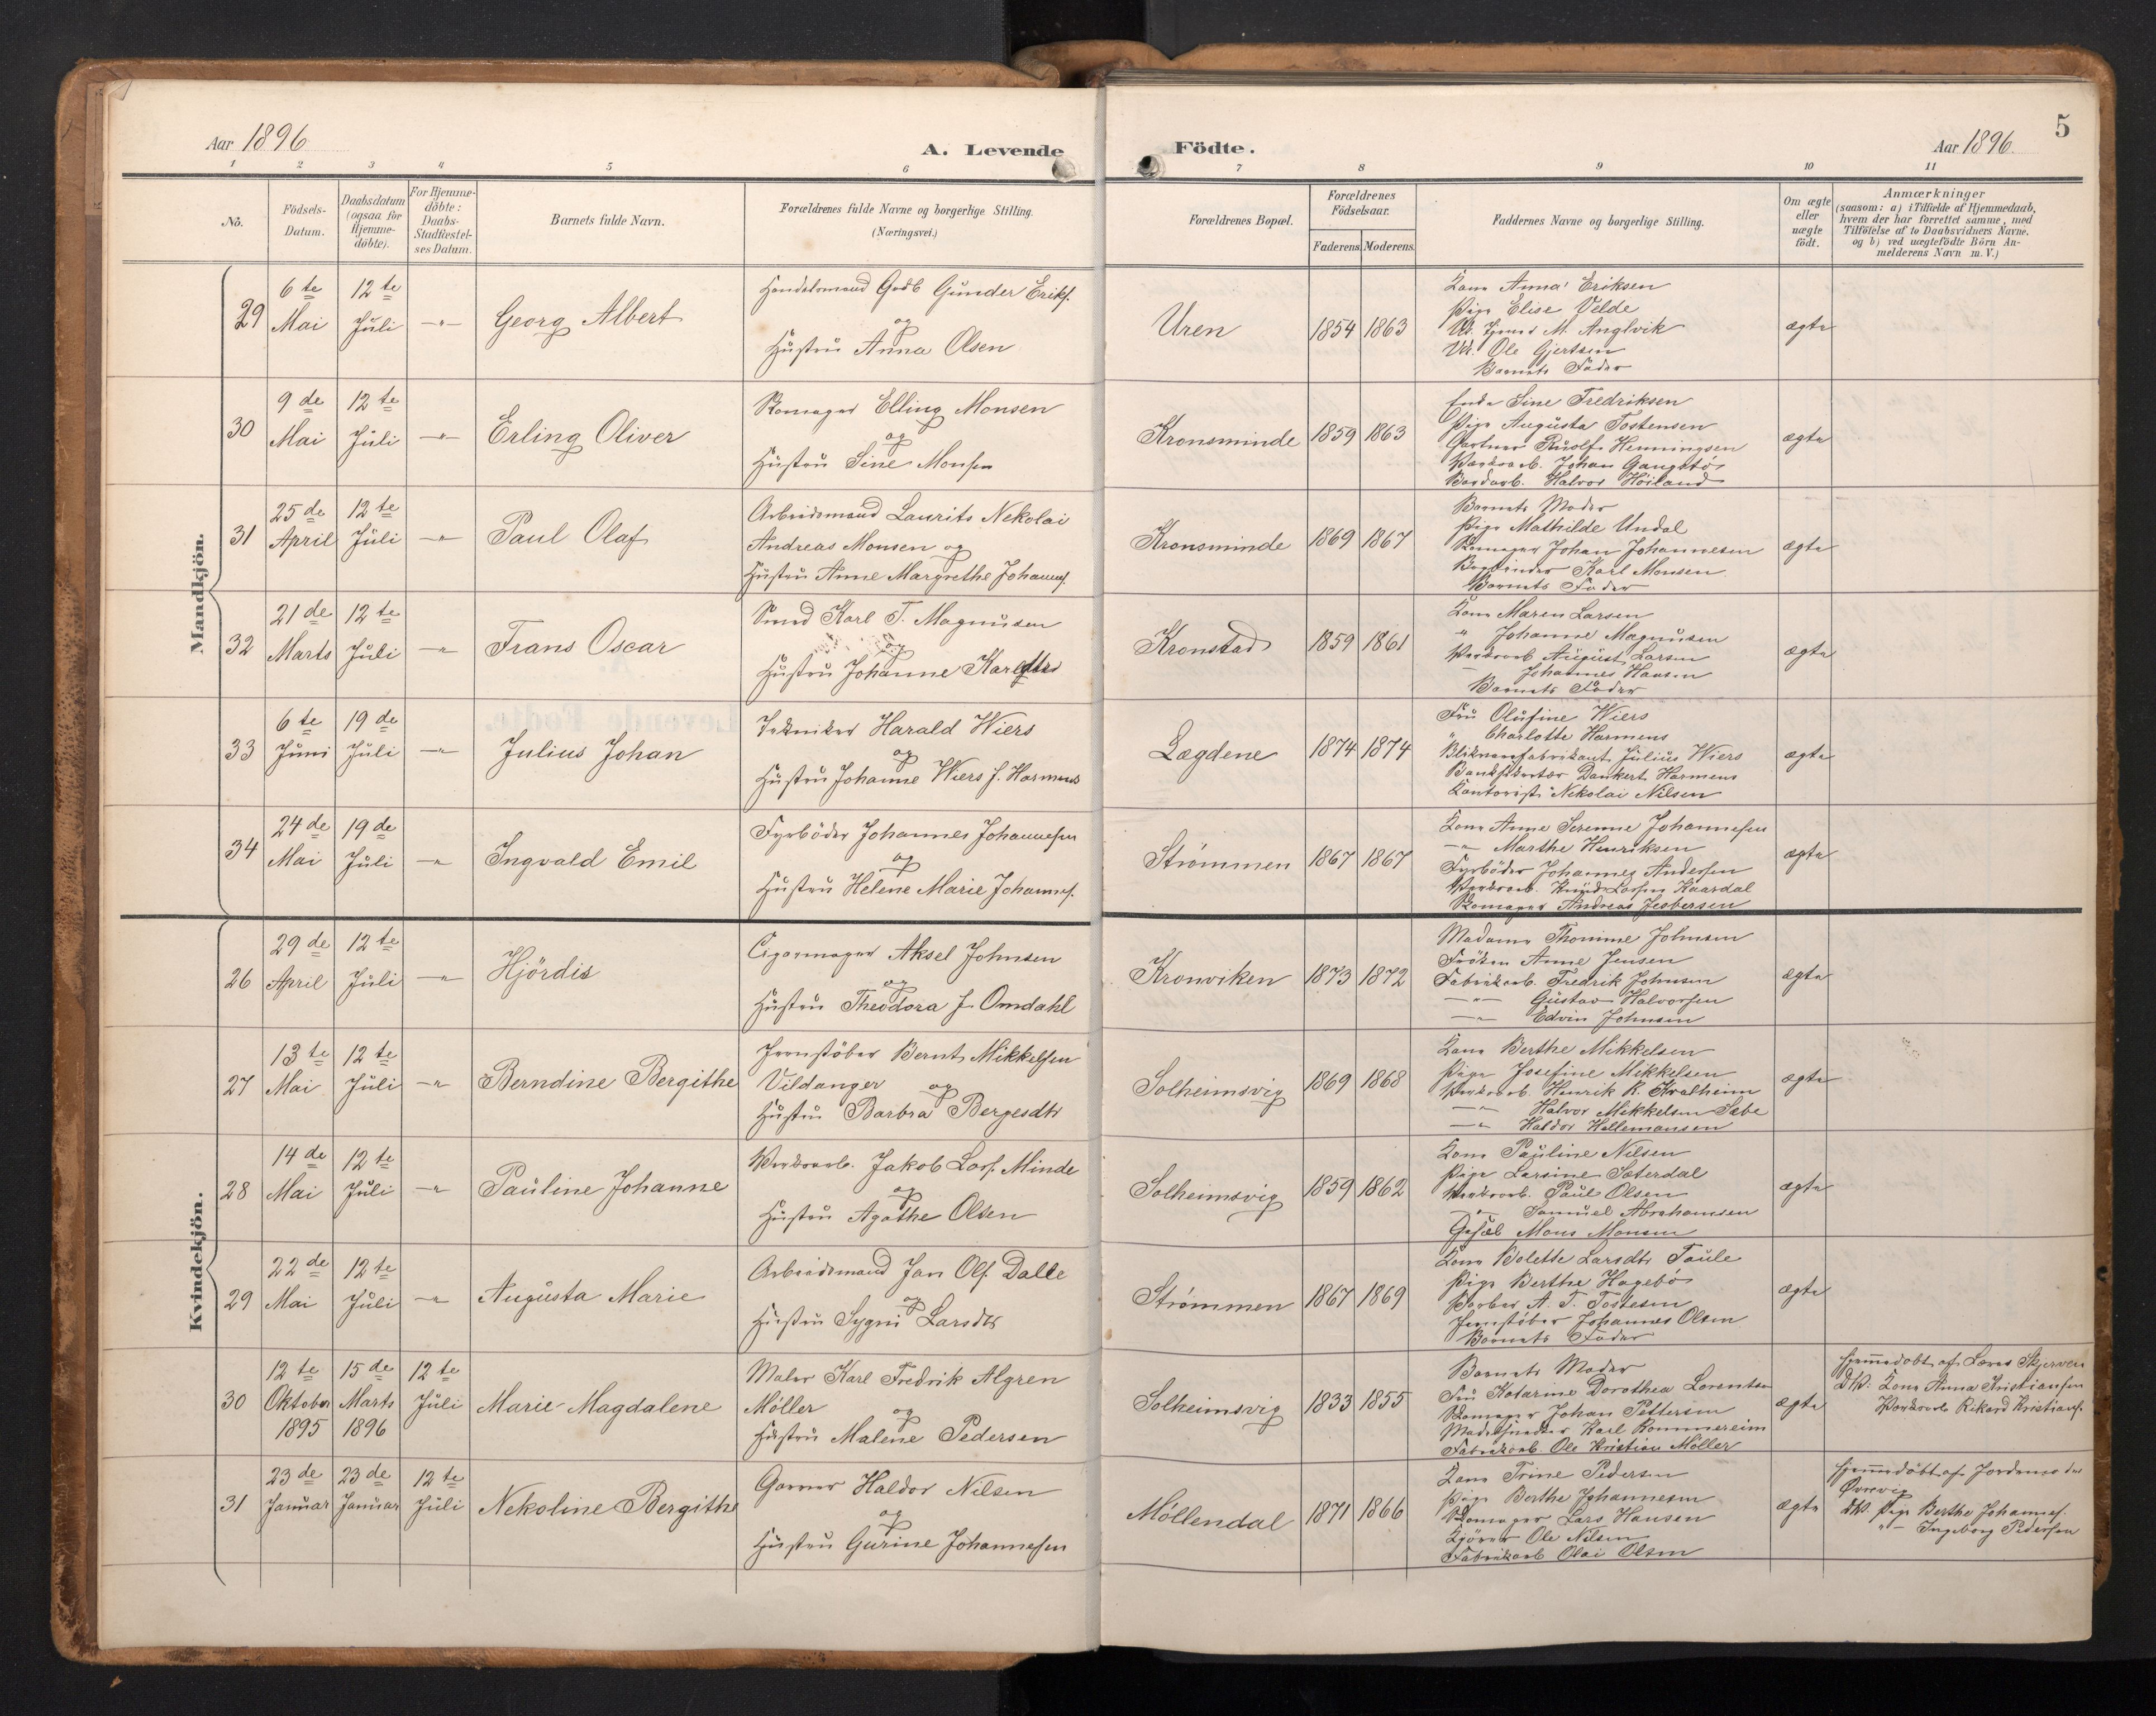 Aar 1896
A. Levende
Födte.
Aar 1896.
5
1 2 3 4 5 6 7 8 9 10 11
No.
Födsels-
Datum.
Daabsdatum
(ogsaa for
Hjemme-
döbte).
For Hjemme-
döbte:
Daabs-
Stadfæstel-
ses Datum.
Barnets fulde Navn.
Forældrenes fulde Navne og borgerlige Stilling.
(Næringsvei.)
Forældrenes Bopæl.
Forældrenes
Födselsaar.
Faderens. Moderens.
Faddernes Navne og borgerlige Stilling.
Om ægte
eller
uægte
födt.
Anmærkninger
(saasom: a) i Tilfælde af Hjemmedaab,
hvem der har forrettet samme, med
Tilföielse af to Daabsvidners Navne,
og b) ved uægtefödte Börn An-
melderens Navn m. V.)
Mandkjön.
29
6te
Mai
12te
Juli
-"-
Georg Albert
Handelsmand Gudb Gunder Eriks.
og
Hustru Anna Olsen
Uren
1854 1863
Kone Anna Eriksen
Pige Elise Velde
M. Anglvik
Ole Gjertsen
Barnets Fader
ægte
30
9de
Mai
12te
Juli
-"-
Erling Oliver
Skomager Elling Monsen
og
Hustru Sine Monsen
Kronsminde
1859 1863
Enke Sine Fredriksen
Pige Augusta Tostensen
Gartner Rudolf Henningsen
Værksarb. Johan Gangstö
Bordarb. Halvor Höiland
ægte
31
25de
April
12te
Juli
-"-
Paul Olaf
Arbeidsmand Laurits Nekolai
Andreas Monsen og
Hustru Anne Margrethe Johannes.
Kronsminde
1869 1867
Barnets Moder
Pige Mathilde Undal
Skomager Johan Johannesen
Bogbinder Karl Monsen
Barnets Fader
ægte
32
21de
Marts
12te
Juli
-"-
Frans Oscar
Smed Karl T. Magnusen
og
Hustru Johanne Karlsdtr
Kronstad
1859 1861
Kone Maren Larsen
" Johanne Magnusen
Værksarb August Larsen
Johannes Hansen
Barnets Fader
ægte
33
6te
Juni
19de
Juli
-"-
Julius Johan
Tekniker Harald Wiers
og
Hustru Johanne Wiers f. Harmens
Lægdene
1874 1874
Fru Olufine Wiers
" Charlotte Harmens
Blikvarefabrikant Julius Wiers
Banksekretær Dankert Harmens
Kontorist Nekolai Nilsen
ægte
34
24de
Mai
19de
Juli
-"-
Ingvald Emil
Fyrböder Johannes Johannesen
og
Hustru Helene Marie Johannes.
Strømmen
1867 1867
Kone Anne Serenne Johannesen
-"- Marthe Henriksen
Fyrböder Johannes Andersen
Værksarb. Knud Larsen Kaardal
Skomager Andreas Jesbersen
ægte
Kvindekjön.
26
29de
April
12te
Juli
-"-
Hjördis
Cigarmager Aksel Johnsen
og
Hustru Theodora f. Omdahl
Kronviken
1873 1872
Madame Thomine Johnsen
Fröken Anne Jensen
Fabrikarb. Fredrik Johnsen
-"- Gustav Halvorsen
-"- Edvin Johnsen
ægte
27
13te
Mai
12te
Juli
-"-
Berndine Bergithe
Jernstöber Bernt Mikkelsen
Vildanger og
Hustru Barbra Bergesdtr
Solheimsvig
1869 1868
Kone Berthe Mikkelsen
Pige Josefine Mikkelsen
Værksarb. Henrik R. Kvalheim
-"- Halvor Mikkelsen Sæbe
-"- Haldor Hellemansen
ægte
28
14de
Mai
12te
Juli
-"-
Pauline Johanne
Værksarb. Jakob Lars. Minde
og
Hustru Agathe Olsen
Solheimsvig
1859 1862
Kone Pauline Nilsen
Pige Larsine Sæterdal
Værksarb. Paul Olsen
-"- Samuel Abrahamsen
Mons Monsen
ægte
29
22de
Mai
12te
Juli
-"-
Augusta Marie
Arbeidsmand Jan Ols. Dalle
og
Hustru Sygni Larsdtr
Strømmen
1867 1869
Kone Bolette Larsdtr Taule
Pige Berthe Hagebö
A. T. Tostesen
Jernstöber Johannes Olsen
Barnets Fader
ægte
30
12te
Oktober
1895
15de
Marts
1896
12te
Juli
Marie Magdalene
Maler Karl Fredrik Algren
Möller og
Hustru Malene Pedersen
Solheimsvig
1833 1855
Barnets Moder
Fru Katarine Dorothea Lorentsen
Skomager Johan Pettersen
Karl Rommereim
Fabrikarb. Ole Kristian Möller
ægte
Hjemmedöbt af Lærer Skjerven
DV: Kone Anna Kristiansen
Værksarb Rikard Kristians.
31
23de
Januar
23de
Januar
12te
Juli
Nekoline Bergithe
Garver Haldor Nilsen
og
Hustru Gurine Johannesen
Möllendal
1871 1866
Kone Trine Pedersen
Pige Berthe Johannesen
Skomager Lars Hansen
Kjörer Ole Nilsen
Fabrikarb Olai Olsen
ægte
Hjemmedöbt af Jordemoder
Øvrevig
DV. Pige Berthe Johannes.
"- Ingeborg Pedersen